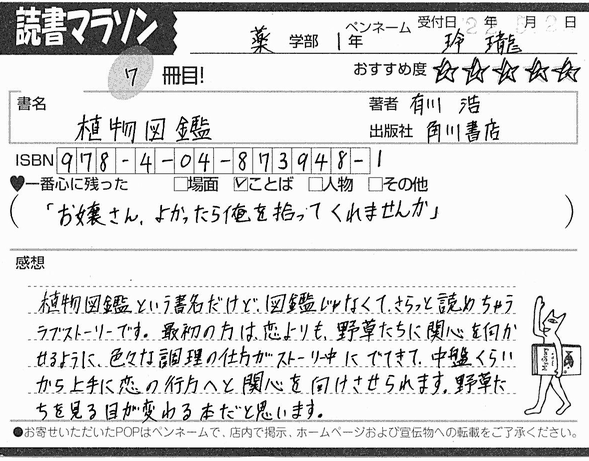 読書マラソン
薬 学部 1年 ペンネーム 玲瓏 受付日 年 月 日
7 冊目! おすすめ度 ☆☆☆☆☆
書名 植物図鑑
著者 有川 浩
出版社 角川書店
ISBN 978-4-04-873948-1
♥一番心に残った □場面 ☑ことば □人物 □その他
(「お嬢さん、よかったら俺を拾ってくれませんか」)
感想
植物図鑑という書名だけど、図鑑じゃなくて、さらっと読めちゃう
ラブストーリーです。最初の方は恋よりも、野草たちに関心を向か
せるように、色々な調理の仕方がストーリー中にでてきて、中盤くらい
から上手に恋の行方へと関心を向けさせられます。野草た
ちを見る目が変わる本だと思います。
●お寄せいただいたPOPはペンネームで、店内で掲示、ホームページおよび宣伝物への転載をご了承ください。